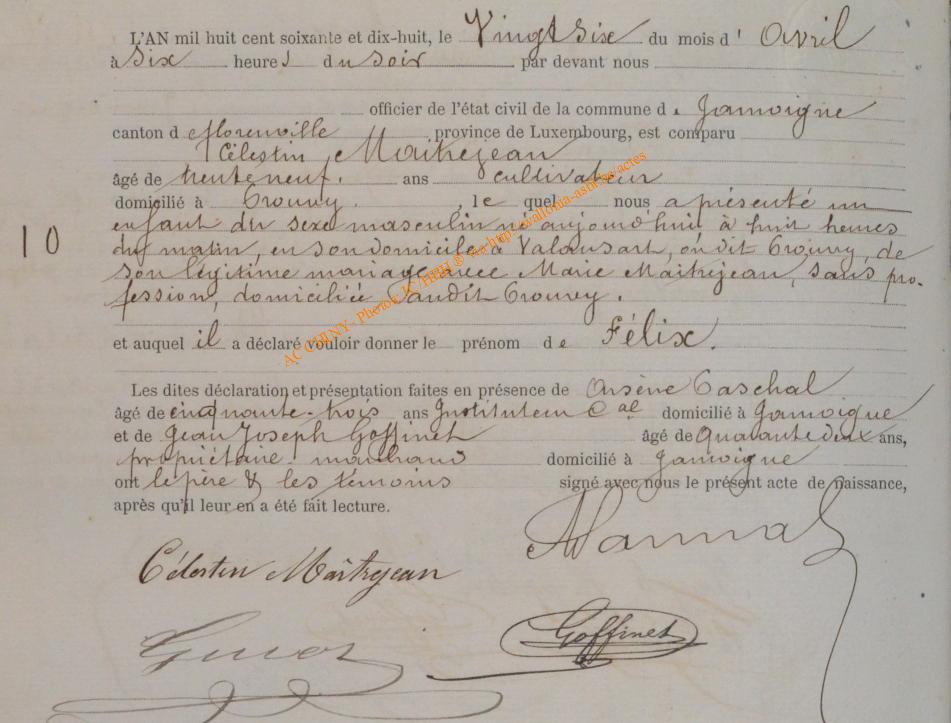 L'AN mil huit cent soixante et dix-huit, le Vingt Six du mois d' Avril
à Six heures du soir par devant nous
officier de l'état civil de la commune de Jamoigne
canton de florenville province de Luxembourg, est comparu
Célestin Maitrejean
âgé de trente neuf ans cultivateur
domicilié à Prouvy, le quel nous a présenté un
enfant du sexe masculin né aujourd'hui, à huit heures
10
du matin, en son domicile à Valansart, de
son légitime mariage avec Marie Maitrejean, sans pro-
fession, domiciliée audit Prouvy.
et auquel il a déclaré vouloir donner le prénom de Félix.
Les dites déclaration et présentation faites en présence de Arsène
âgé de cinquante-trois ans Instituteur Cal domicilié à Jamoigne
et de Jean Joseph Goffinet âgé de Quarante deux ans,
propriétaire marchand domicilié à Jamoigne
ont le père & les témoins signé avec nous le présent acte de naissance,
après qu'il leur en a été fait lecture.
Célestin Maitrejean
Goffinet
AC CHINY - Photos http://wallonia-asbl.be/actes